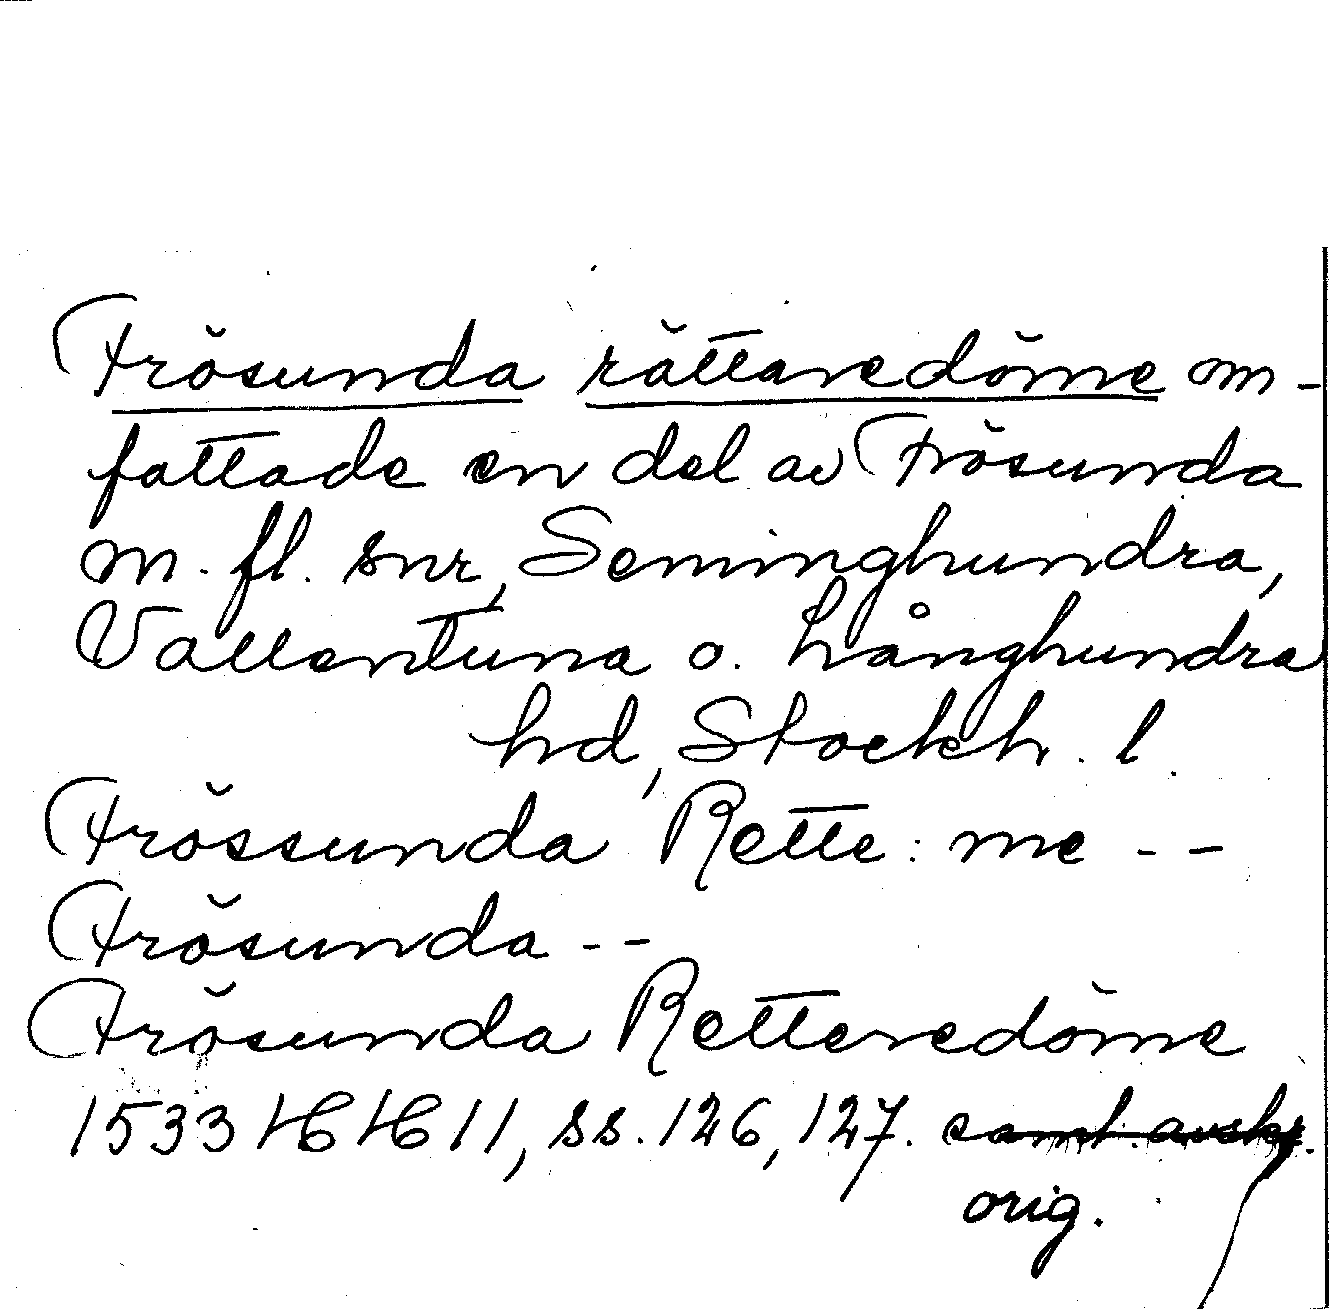 Frösunda rättaredöme om-
fattade en del av Frösunda
m. fl. snr, Seminghundra,
Vallentuna o. Långhundra
hd, Stockh. l.
Frössunda Rette: me --
Frösunda --
Frösunda Retteredöme
1533 HH 11, ss. 126, 127. samt. avskr.
orig.